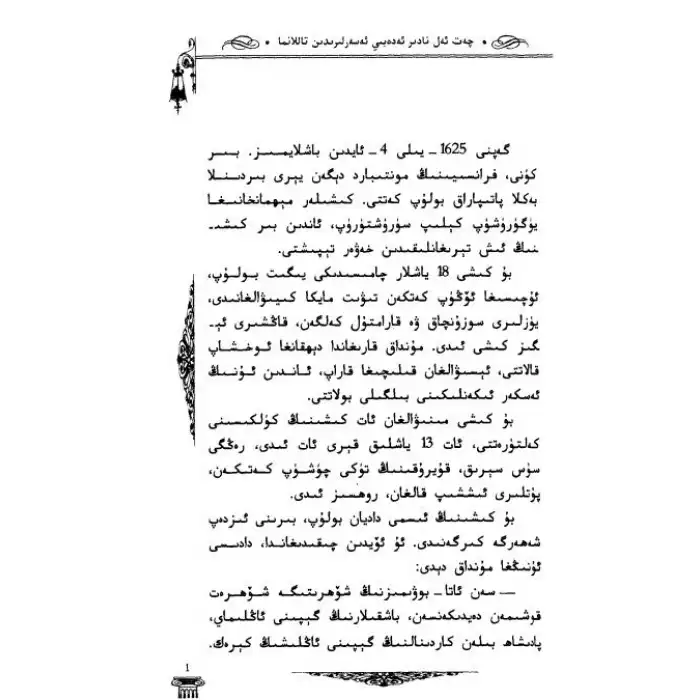 چەت ئەل نادىر ئەدەبىي ئەسەرلىرىدىن تاللانما
گەپنى 1625 ـ يىلى 4 ـ ئايدىن باشلايمىز. بىر
كۈنى، فرانسىيىنىڭ مونتىبارد دېگەن يېرى بىردىنلا
بەكلا پاتىپاراق بولۇپ كەتتى. كىشىلەر مېھمانخانىغا
يۈگۈرۈشۈپ كېلىپ سۈرۈشتۈرۈپ، ئاندىن بىر كىشىـ
نىڭ ئىش تېرىغانلىقىدىن خەۋەر تېپىشتى.
بۇ كىشى 18 ياشلار چامىسىدىكى يىگىت بولۇپ،
ئۇچىسىغا ئۆڭۈپ كەتكەن تىۋىت مايكا كىيىۋالغانىدى،
يۈزلىرى سوزۇنچاق ۋە قارامتۇل كەلگەن، قاڭشىرى ئېـ
گىز كىشى ئىدى. مۇنداق قارىغاندا دېھقانغا ئوخشاپ
قالاتتى، ئېسىۋالغان قىلىچىغا قاراپ، ئاندىن ئۇنىڭ
ئەسكەر ئىكەنلىكىنى بىلگىلى بولاتتى.
بۇ كىشى مىنىۋالغان ئات كىشىنىڭ كۈلكىسىنى
كەلتۈرەتتى، ئات 13 ياشلىق قېرى ئات ئىدى، رەڭگى
سۇس سېرىق، قۇيرۇقىنىڭ تۈكى چۈشۈپ كەتكەن،
پۇتلىرى ئىششىپ قالغان، روھسىز ئىدى.
بۇ كىشىنىڭ ئىسمى داديان بولۇپ، بىرىنى ئىزدەپ
شەھەرگە كىرگەنىدى. ئۇ ئۆيدىن چىقىدىغاندا، دادىسى
ئۇنىڭغا مۇنداق دېدى:
— سەن ئاتا ـ بوۋىمىزنىڭ شۆھرىتىگە شۆھرەت
قوشىمەن دەيدىكەنسەن، باشقىلارنىڭ گېپىنى ئاڭلىماي،
پادىشاھ بىلەن كاردىنالنىڭ گېپىنى ئاڭلىشىڭ كېرەك.
1